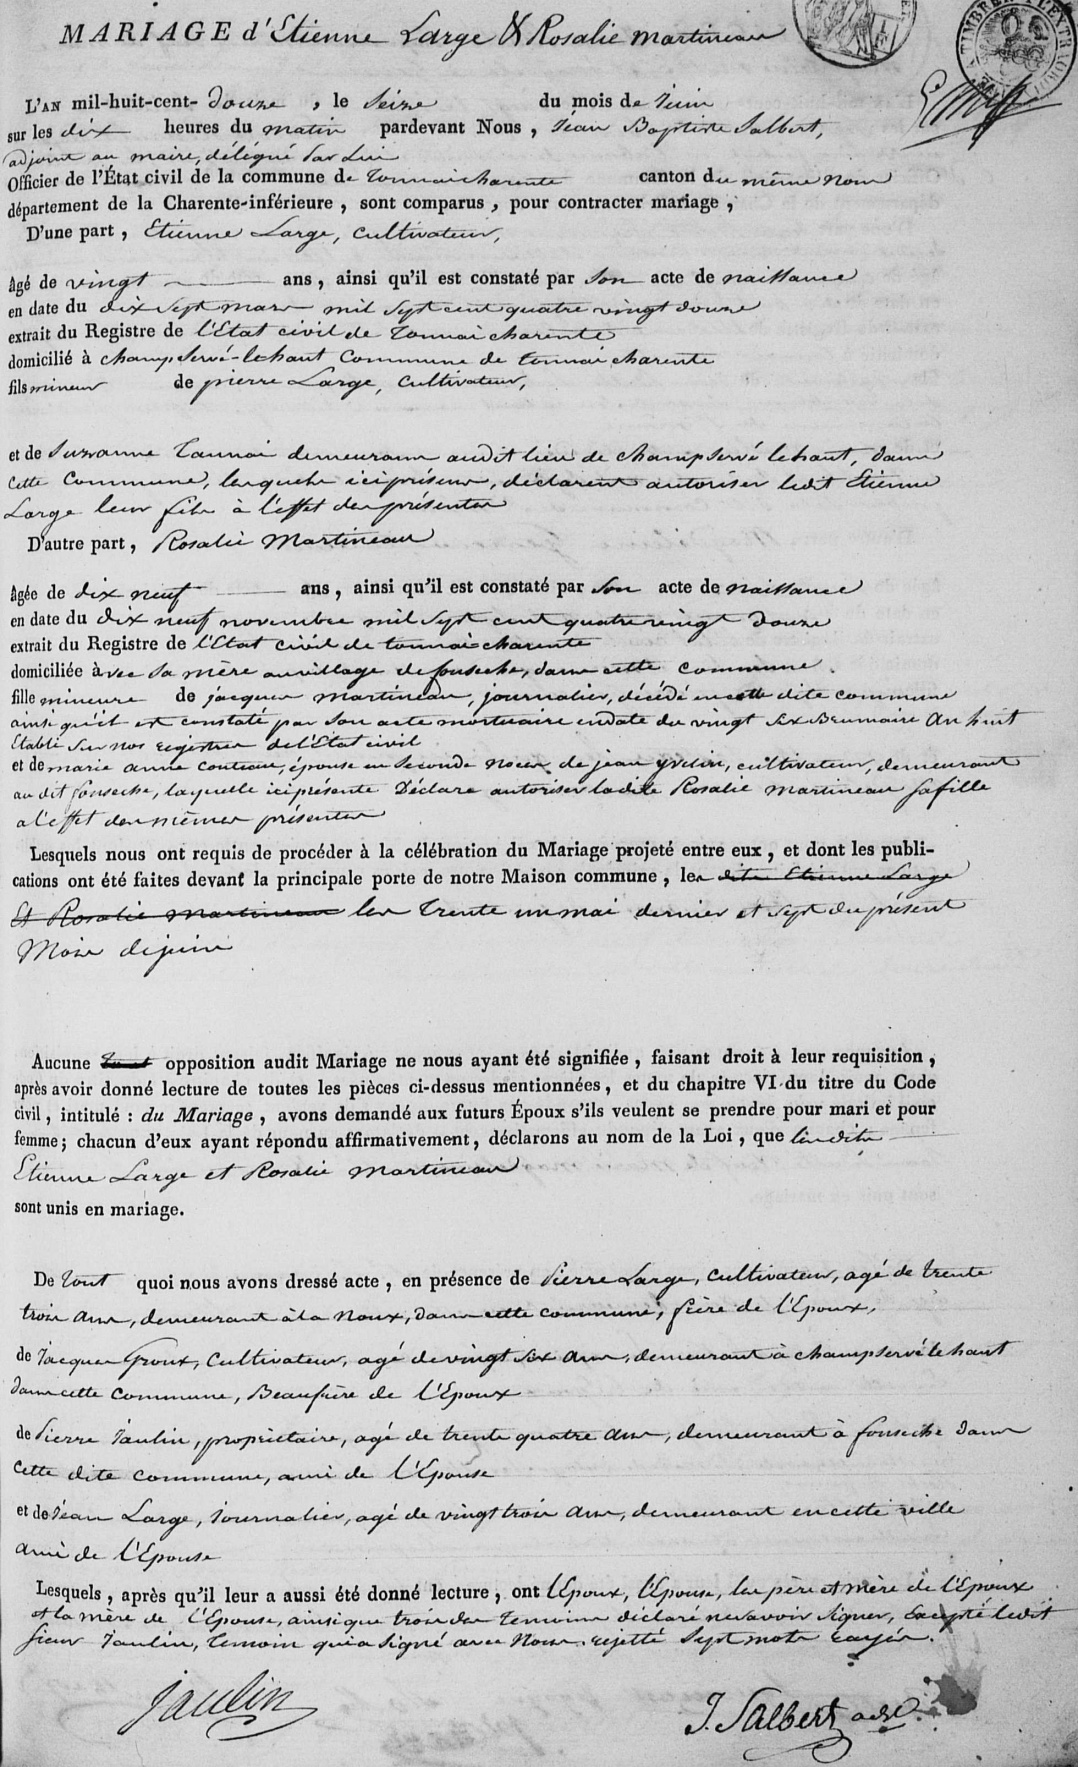 MARIAGE d'Etienne Large & Rosalie Martineau
L'AN mil-huit-cent- douze , le Seize du mois de Juin
sur les dix heures du matin pardevant Nous , Jéan Baptiste Salbert,
adjoint au maire, délégué par Lui
Officier de l'État civil de la commune de tonnaicharente canton du même Nom
département de la Charente-inférieure , sont comparus , pour contracter mariage ,
D'une part , Etienne Large, cultivateur,
âgé de vingt ans , ainsi qu'il est constaté par son acte de naissance
en date du dix sept mars mil sept cent quatre vingt douze
extrait du Registre de l'Etat civil de tonnaicharente
domicilié à champservé-lehaut commune de tonnaicharente
fils mineur de pierre Large, cultivateur,
et de Suzanne Tonnai demeurans audit lieu de champservé lehaut, dans
cette commune, lesquels ici présens, déclarent autoriser ledit Etienne
Large leur fils à l'effet des présentes
D'autre part , Rosalie Martineau
âgée de dix neuf ans , ainsi qu'il est constaté par son acte de naissance
en date du dix neuf novembre mil sept cent quatre vingt douze
extrait du Registre de l'Etat civil de tonnaicharente
domiciliée avec sa mère au village de fonseche, dans cette commune.
fille mineure de jacques martineau, journalier, décédé en cette dite commune
ainsi qu'il est constaté par son acte mortuaire en date du vingt six Brumaire An huit
Etabli sur nos registres de l'Etat civil
et de marie anne couteau, épouse en seconde noces de jean yvelin, cultivateur, demeurant
au dit fonseche, laquelle ici présente Déclare autoriser la dite Rosalie Martineau sa fille
a l'effet des mêmes présentes
Lesquels nous ont requis de procéder à la célébration du Mariage projeté entre eux , et dont les publi-
cations ont été faites devant la principale porte de notre Maison commune , les dits Etienne Large
Et Rosalie Martineau les trente un mai dernier et sept du présent
Mois de juin
Aucune opposition audit Mariage ne nous ayant été signifiée , faisant droit à leur requisition ,
après avoir donné lecture de toutes les pièces ci-dessus mentionnées , et du chapitre VI du titre du Code
civil , intitulé : du Mariage , avons demandé aux futurs Époux s'ils veulent se prendre pour mari et pour
femme ; chacun d'eux ayant répondu affirmativement , déclarons au nom de la Loi , que lesdits
Etienne Large et Rosalie Martineau
sont unis en mariage.
De tout quoi nous avons dressé acte , en présence de Pierre Large, cultivateur, agé de trente
trois ans, demeurant à la Noux, dans cette commune, frère de l'Epoux,
de Jacques Groux, Cultivateur, agé de vingt six ans, demeurant à champservé le haut
dans cette commune, Beaufrère de l'Epoux
de Pierre Jaulin, propriétaire, agé de trente quatre ans, demeurant à fonseche dans
cette dite commune, ami de l'Epouse
et de Jéan Large, Journalier, agé de vingt trois ans, demeurant en cette ville
ami de l'Epouse
Lesquels , après qu'il leur a aussi été donné lecture , ont l'Epoux, l'Epouse, les père et mère de l'Epoux
et la mère de l'Epouse, ainsi que trois des temoins déclaré ne savoir Signer, Excepté ledit
sieur Jaulin, temoin qui a signé avec Nous. rejetté sept mots rayés.
Jaulin
J. Salbert adj.